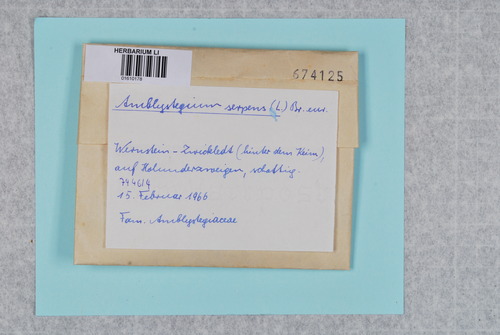 HERBARIUM LI
01610178
674125
Amblystegium serpens (L) Br. eur.
Wernstein - Zwickledt (hinter dem Heim),
auf Holunderzweigen, schattig.
7446/4
15. Februar 1966
Fam. Amblystegiaceae